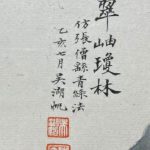 翠岫瓊林
仿張僧繇青綠法
乙亥七月吳湖帆